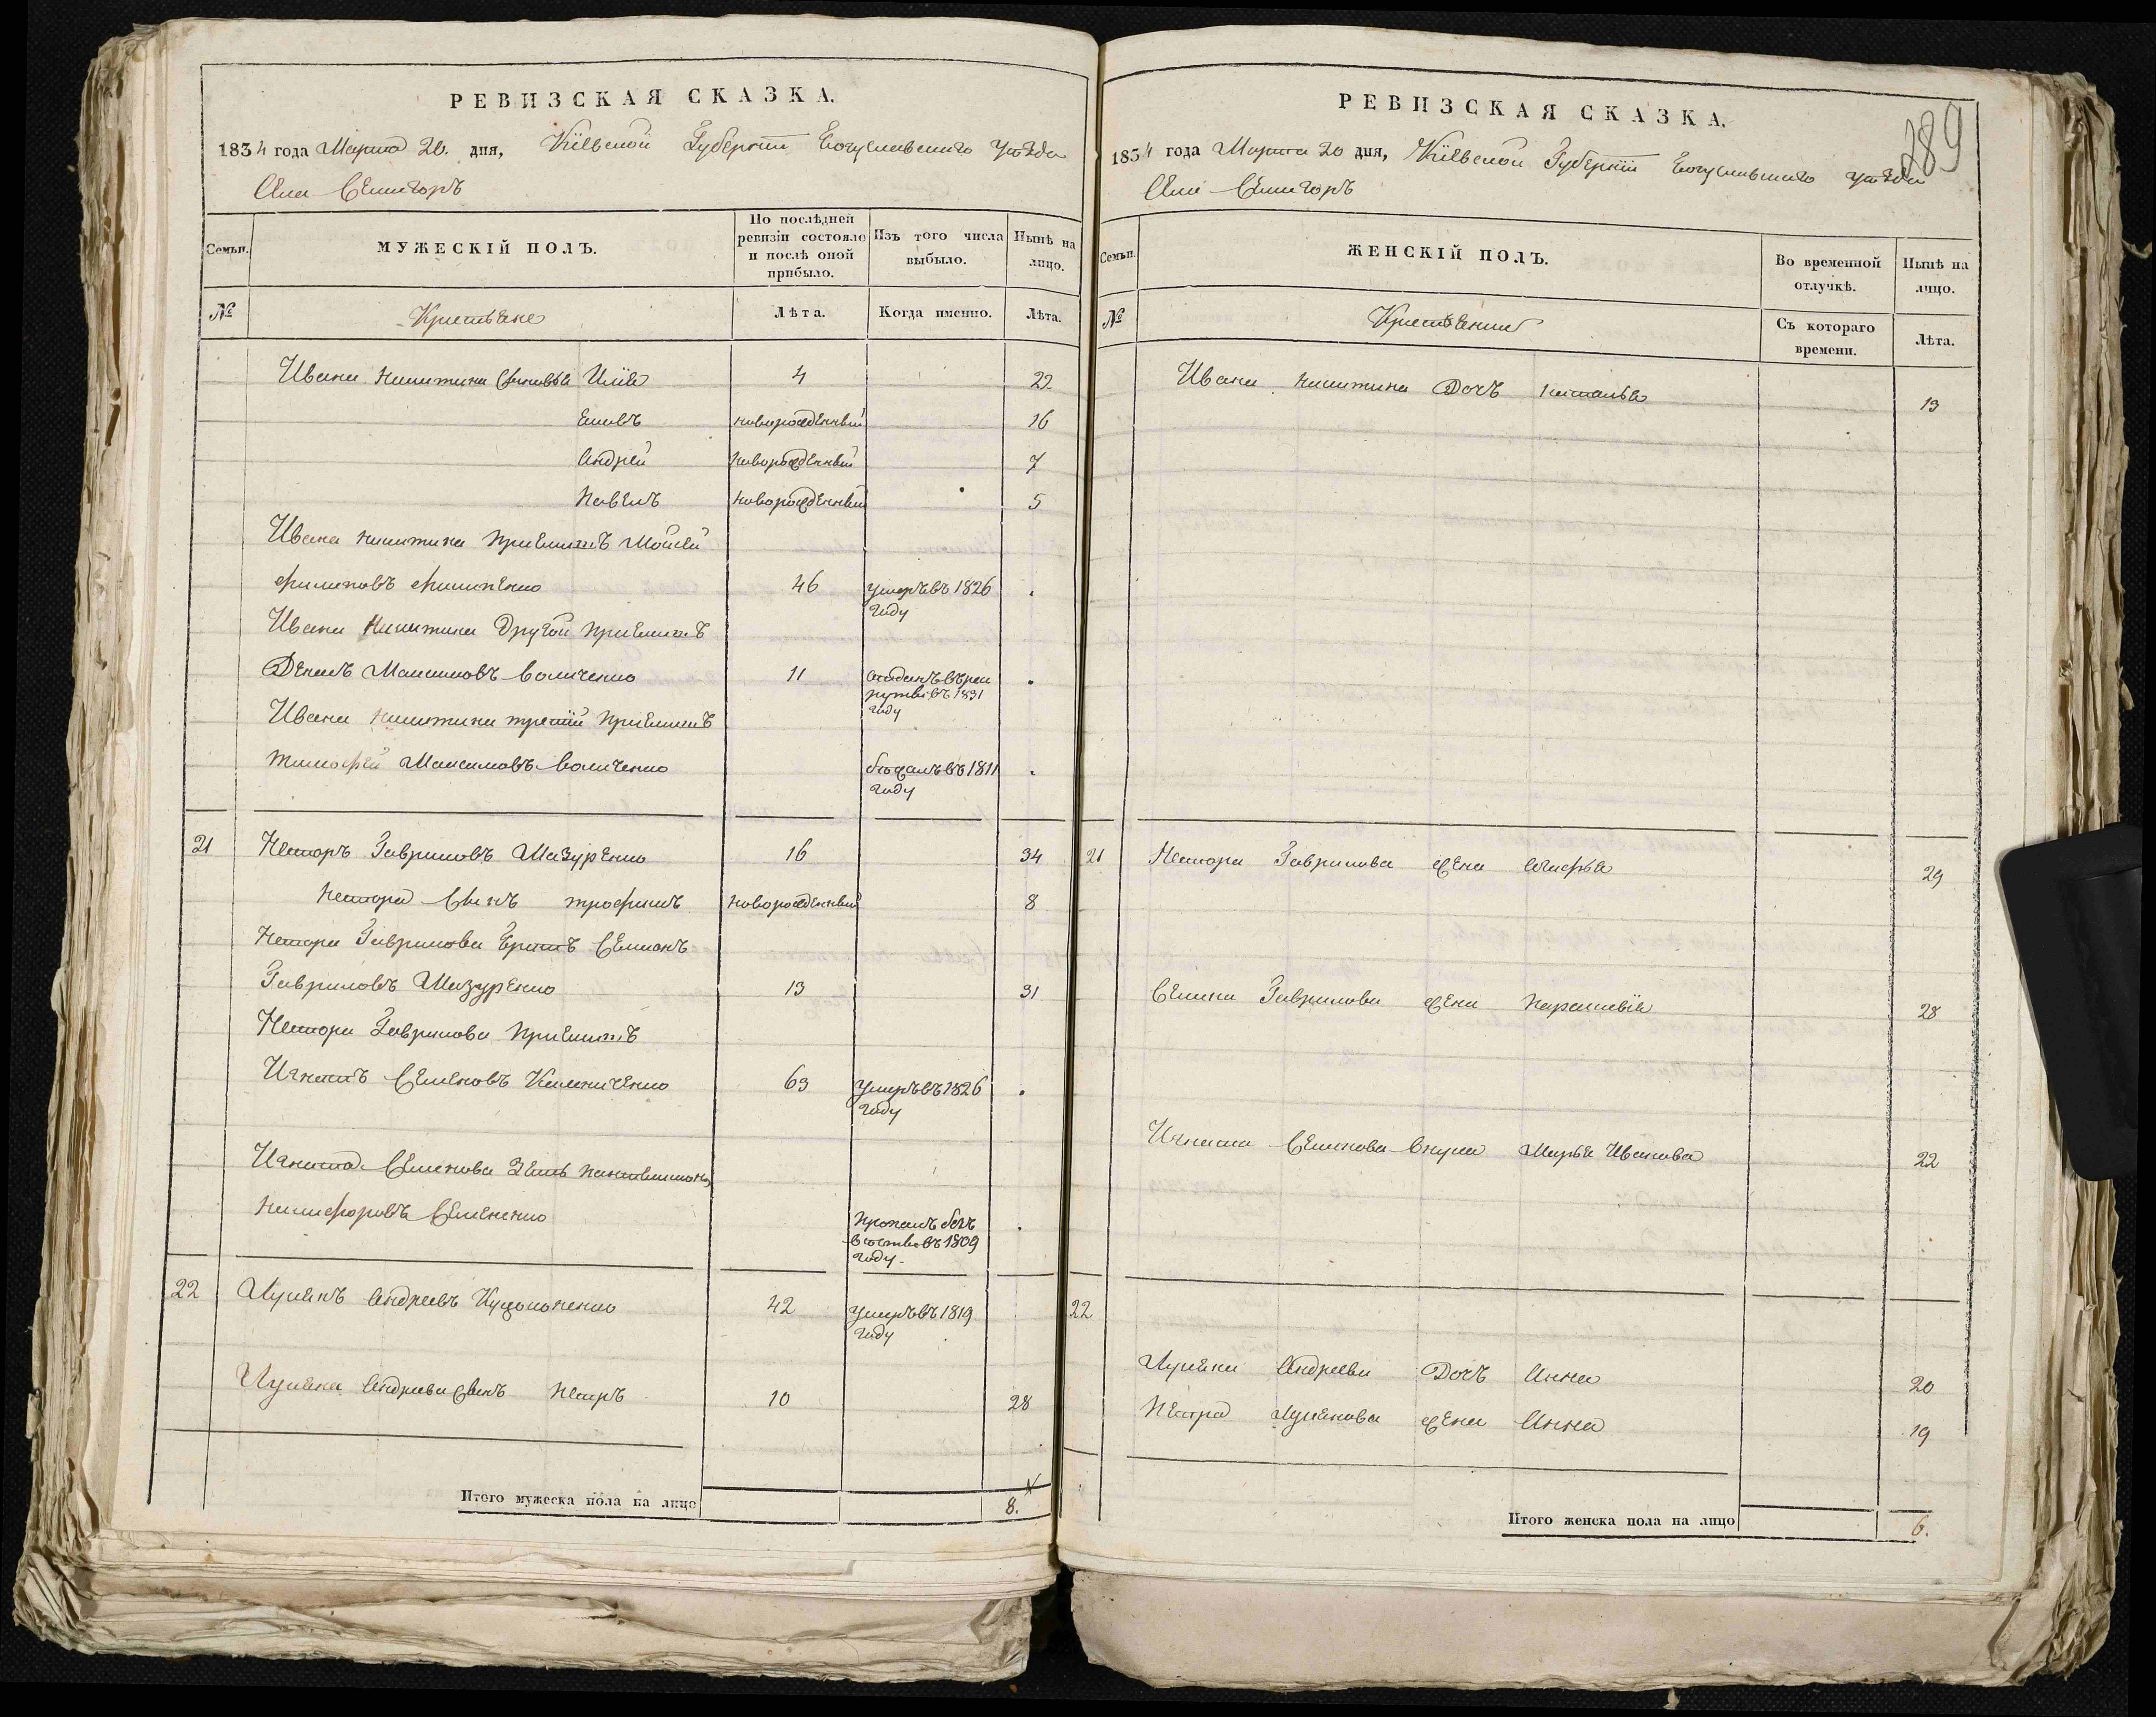 РЕВИЗСКАЯ СКАЗКА.
1834 года Марта 20. дня, Кіевской Губерніи Богуславскаго уѣзда
Села Семигоръ
Семьи.
МУЖЕСКІЙ ПОЛЪ.
По послѣдней ревизіи состояло и послѣ оной прибыло.
Изъ того числа выбыло.
Нынѣ на лицо.
№
Крестьяне
Лѣта.
Когда именно.
Лѣта.
Ивана Никитина Сыновья Илія 4 22
Іаковъ новорожденный 16
Андрей новорожденный 7
Павелъ новорожденный 5
Ивана Никитина пріемышъ Мойсей
Филиповъ Филипенко 46 умеръ въ 1826 году
Ивана Никитина другой пріемышъ
Денисъ Максимовъ 11 отданъ въ рекруты въ 1831 году
Ивана Никитина третій пріемышъ
Тимофей Максимовъ бѣжалъ въ 1811 году
21 Несторъ Гавриловъ Мазуренко 16 34
Нестора Сынъ Трофимъ новорожденный 8
Нестора Гаврилова Братъ Семионъ
Гавриловъ Мазуренко 13 31
Нестора Гаврилова пріемышъ
Игнатъ Семеновъ 63 умеръ въ 1826 году
Игната Семенова Зять Пантелимонъ
Никифоровъ Семененко пропалъ безъ вѣсти въ 1809 году
22 Лукьянъ Андреевъ 42 умеръ въ 1819 году
Лукьяна Андреева Сынъ Петръ 10 28
Итого мужеска пола на лицо 8.
189
РЕВИЗСКАЯ СКАЗКА.
1834 года Марта 20 дня, Кіевской Губерніи Богуславскаго уѣзда
Села Семигоръ
Семьи.
ЖЕНСКІЙ ПОЛЪ.
Во временной отлучкѣ.
Нынѣ на лицо.
№
Крестьянки
Съ котораго времени.
Лѣта.
Ивана Никитина Дочь Наталья 13
21 Нестора Гаврилова жена Агафья 29
Семиона Гаврилова жена Параскевія 28
Игната Семенова внука Марья Иванова 22
22
Лукьяна Андреева Дочь Анна 20
Петра Лукьянова жена Анна 19
Итого женска пола на лицо 6.